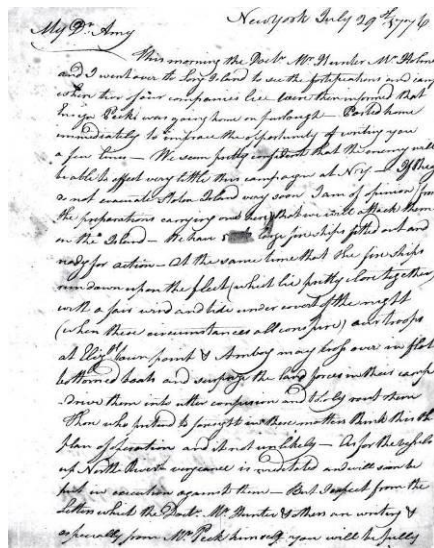 New York July 29th 1776
My Dr Amy
This morning the Doctr Mr Hunter Mr
and I went over to Long Island to see the fortifications and camp
where two of our companies lie were then informed that
Ensign Peck was going home on furlough — Posted home
immediately to embrace the opportunity of writing you
a few lines — We seem pretty confident that the enemy will
be able to effect very little this campaign at N.Y. — If they
do not evacuate Staten Island very soon I am of opinion (from
the preparations carrying on here) that we will attack them
on the Island — We have large fire ships fitted out and
ready for action — At the same time that the fire ships
run down upon the fleet (which lie pretty close together)
with a fair wind and tide under covert of the night
(when these circumstances all conspire) our troops
at Elizth town point & Amboy may cross over in flat
bottomed boats and surprize the land forces in their camp
drive them into utter confusion and totally rout them
Those who pretend to foresight in these matters think this the
plan of operation and it not unlikely — As for the vessels
up North River vengeance is meditated and will soon be
put in execution against them — But I expect from the
letters which the Doctr Mr Hunter & others are writing &
especially from Mr Peck himself you will be fully